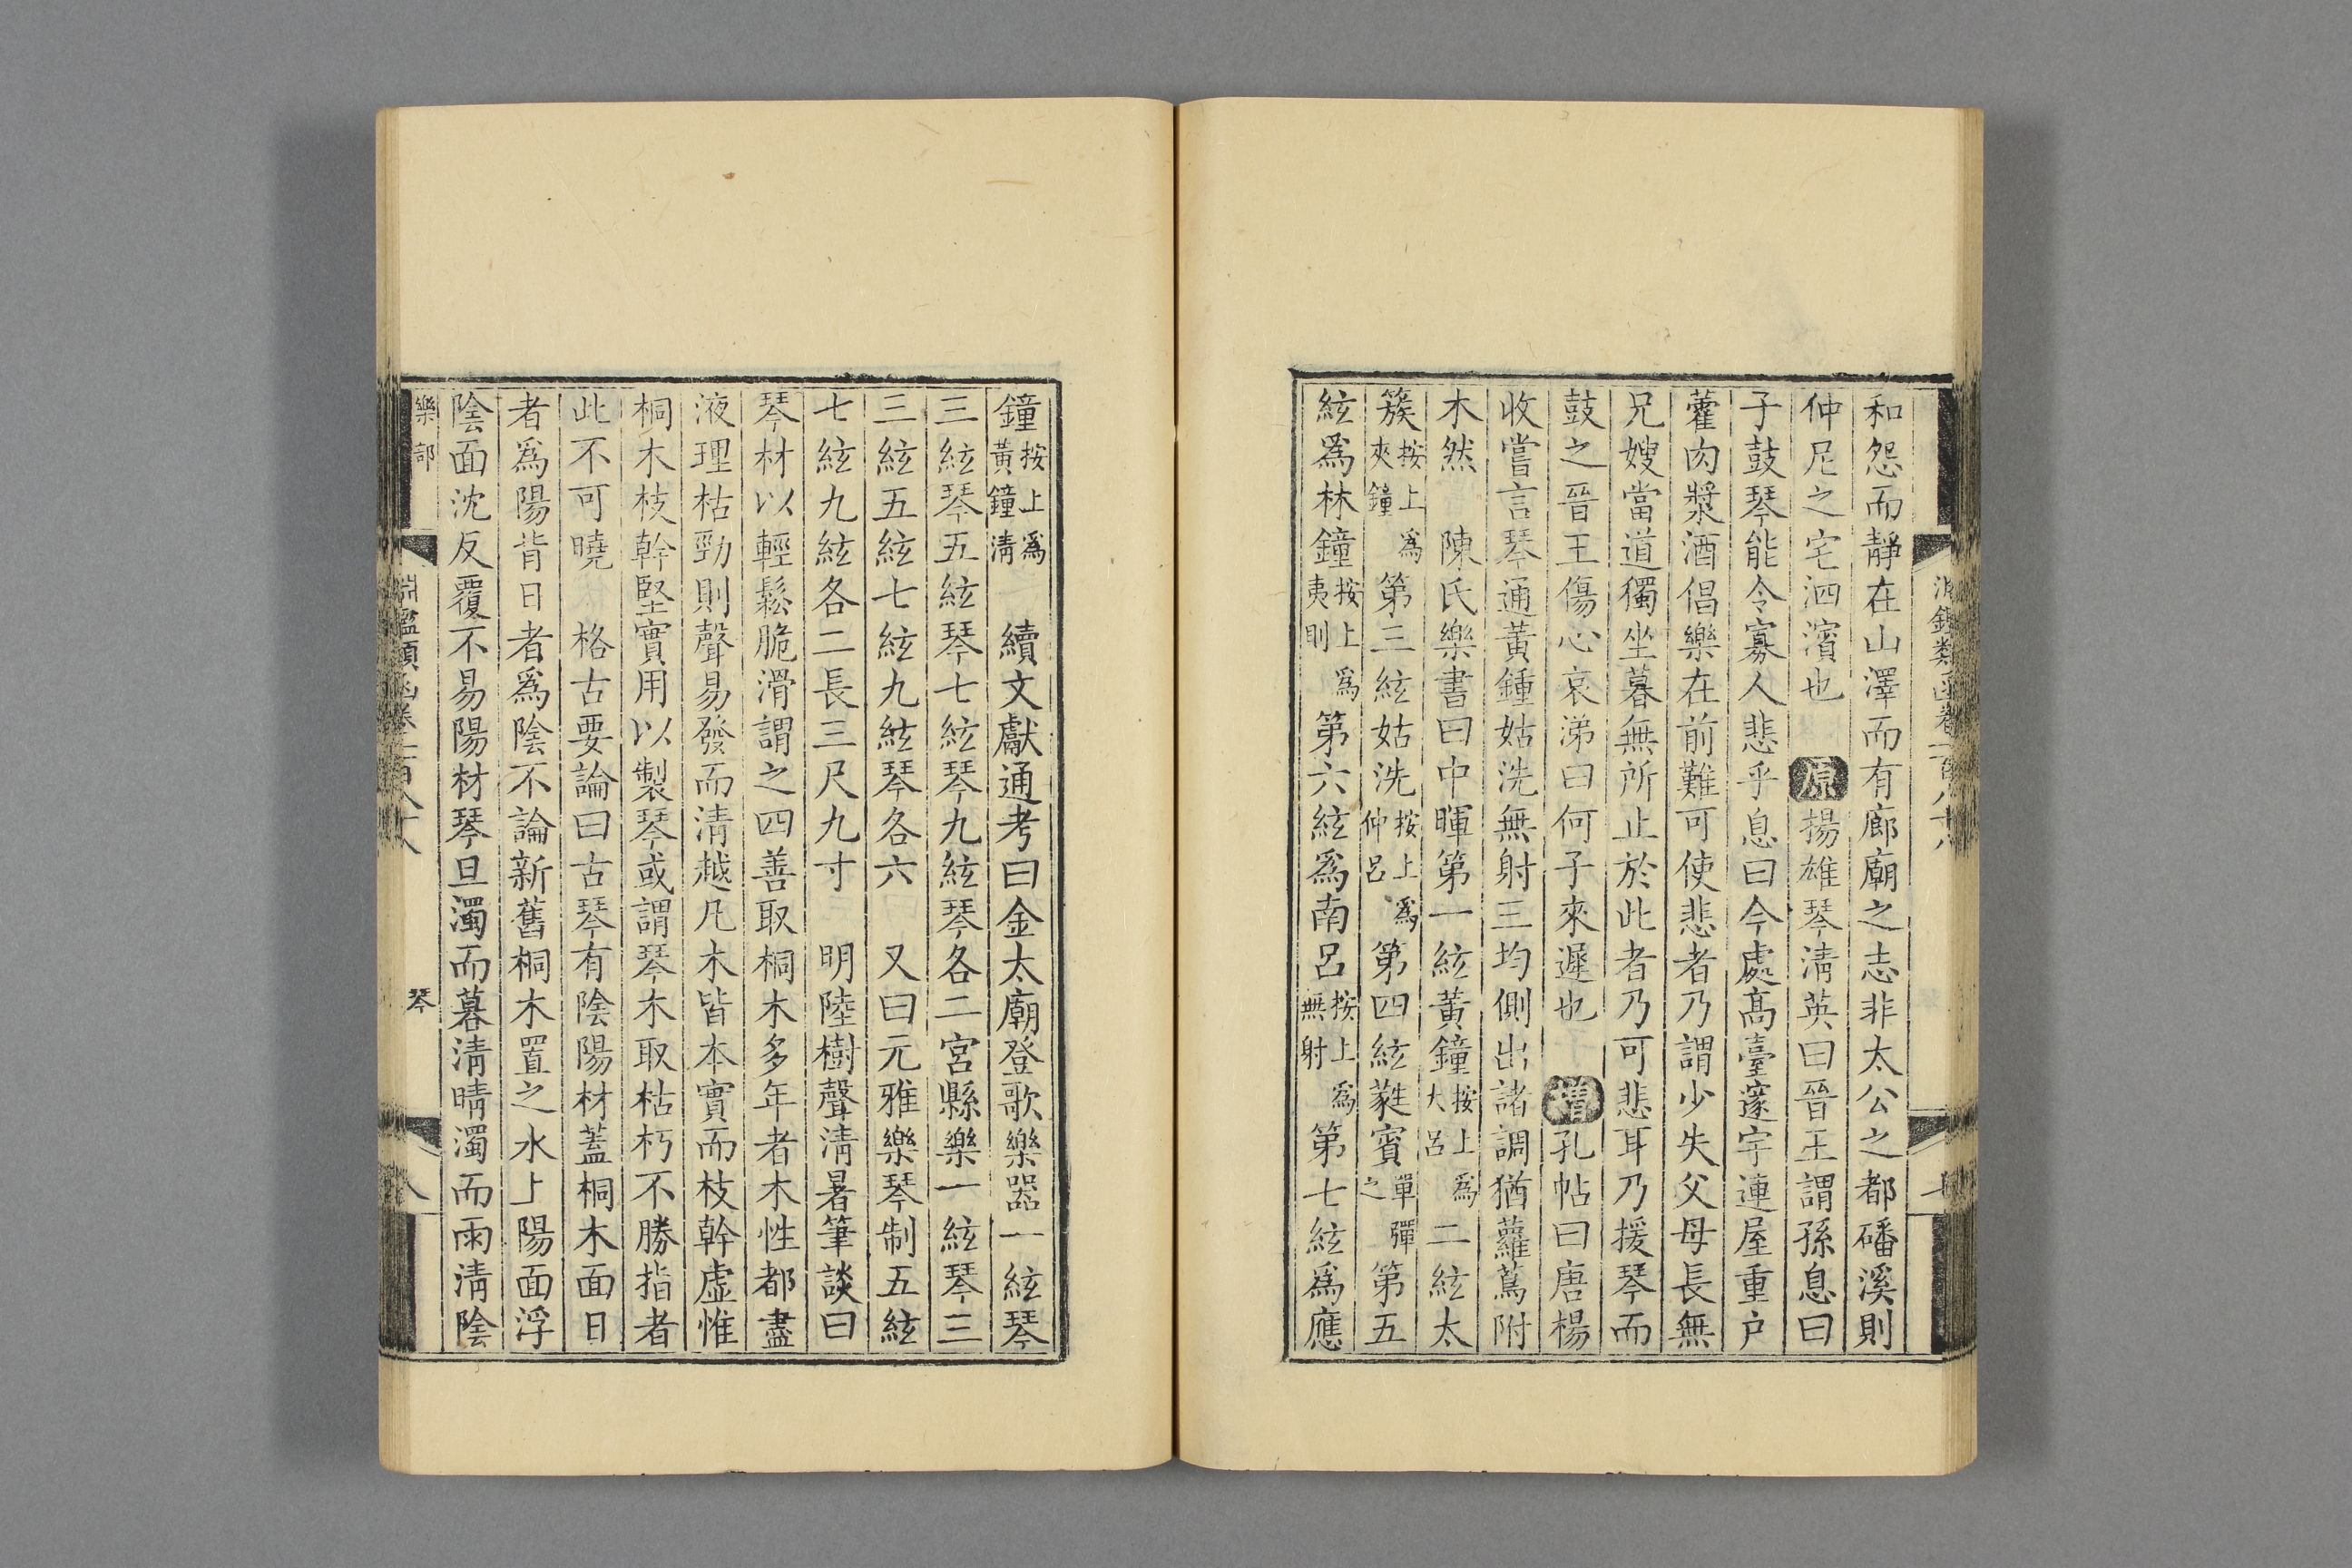 和怨而靜在山澤而有廊廟之志非太公之都磻溪則
仲尼之宅泗濱也 原 揚雄琴淸英曰晉王謂孫息曰
子鼓琴能令寡人悲乎息曰今處髙臺邃宇連屋重户
藿肉漿酒倡樂在前難可使悲者乃謂少失父母長無
兄嫂當道獨坐暮無所止於此者乃可悲耳乃援琴而
鼓之晉王傷心哀涕曰何子來遲也 增 孔帖曰唐楊
收嘗言琴通黃鍾姑洗無射三均側出諸調猶蘿蔦附
木然 陳氏樂書曰中暉第一絃黃鐘按上爲大呂二絃太
簇按上爲夾鐘第三絃姑洗按上爲仲呂第四絃蕤賓單彈之第五
絃爲林鐘按上爲夷則第六絃爲南呂按上爲無射第七絃爲應
鐘按上爲黃鐘淸 續文獻通考曰金太廟登歌樂器一絃琴
三絃琴五絃琴七絃琴九絃琴各二宮縣樂一絃琴三
三絃五絃七絃九絃琴各六 又曰元雅樂琴制五絃
七絃九絃各二長三尺九寸 明陸樹聲淸暑筆談曰
琴材以輕鬆脆滑謂之四善取桐木多年者木性都盡
液理枯勁則聲易發而清越凡木皆本實而枝幹虛惟
桐木枝幹堅實用以製琴或謂琴木取枯朽不勝指者
此不可曉 格古要論曰古琴有陰陽材蓋桐木面日
者爲陽背日者爲陰不論新舊桐木置之水上陽面浮
陰面沈反覆不易陽材琴旦濁而暮淸晴濁而雨淸陰
樂部
淵鑑類函卷一百八十八
琴
八